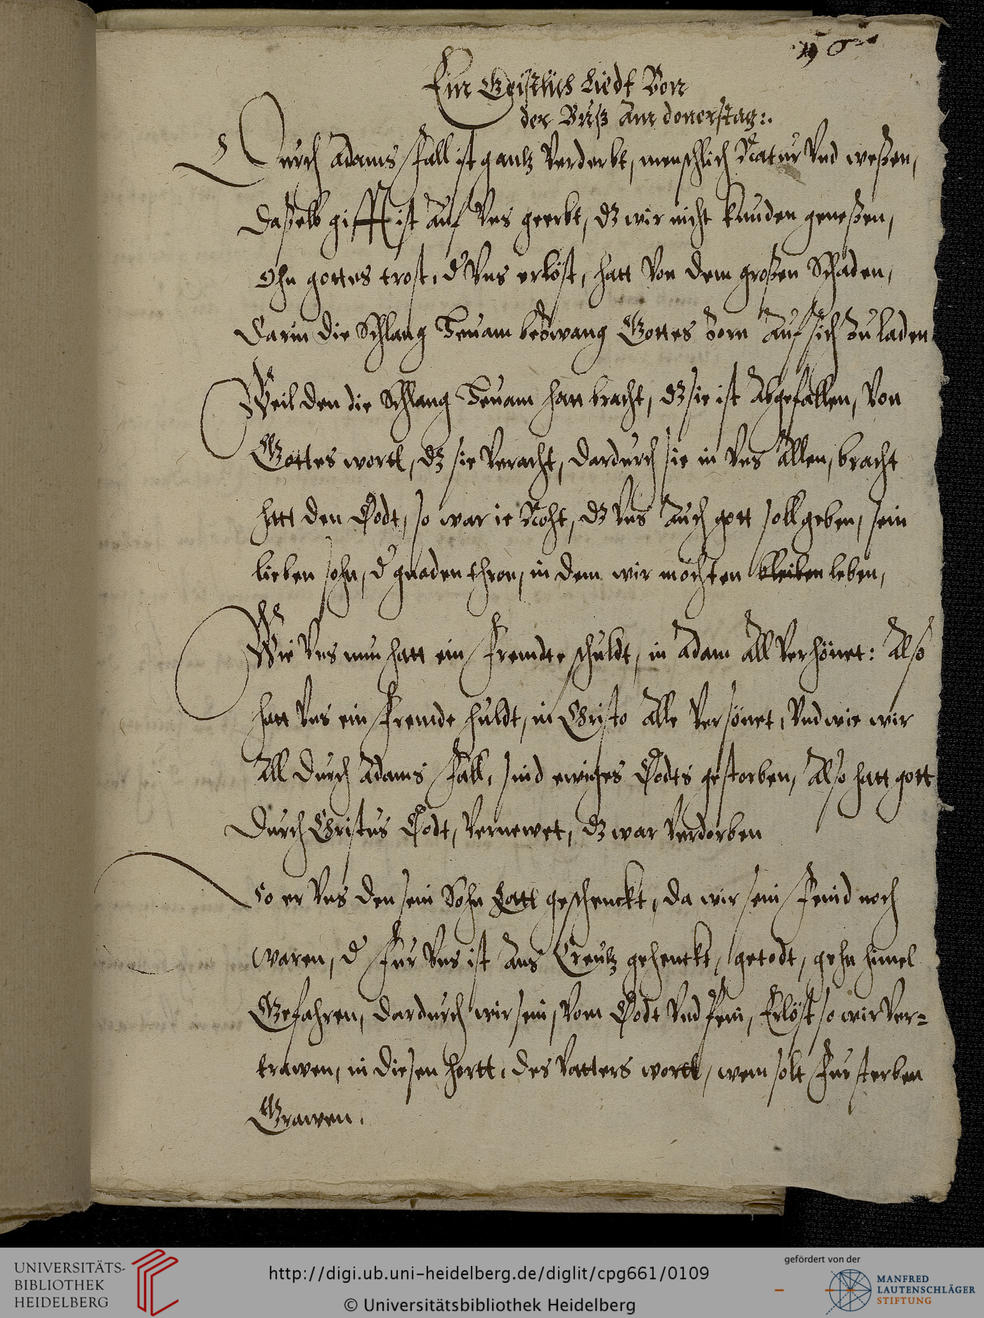 Ein Geistlich Liedt Von
der Buß Am donerstag:.
Durch Adams Fall ist gantz Verderbt, menschlich Natur Vnd weßen,
Daßelb gifft ist Auf Vns geerbt, dz wir nicht kunden geneßen,
Ohn gottes trost, d Vns erlöst, hatt Von dem großen Schaden,
Darin die Schlang Heuam bezwang Gottes Zorn Auf sich Zu laden
Weil den die Schlang Heuam hatt bracht, dz sie ist Abgefallen, Von
Gottes wortt, dz sie Veracht, dardurch sie in Vns Allen, bracht
hatt den Todt, so war ie Noht, dz Vns Auch gott soll geben, sein
lieben sohn, d gnaden thron, in dem wir möchten kleiben leben,
Wie Vns nun hatt ein Fremdte schuldt, in Adam All Verhönet: Also
hatt Vns ein Fremde huldt, in Christo Alle Versönet, Vnd wie wir
All Durch Adams Fall, sind ewiges Todts gestorben, Also hatt gott
Durch Christus Todt, Vernewet, dz war Verdorben
So er Vns den sein Sohn hatt geschenckt, da wir sein Feind noch
waren, d Fur Vns ist Ans Creutz gehenckt, getodt, gehn himel
Gefahren, dardurch wir sein, Vom Todt Vnd Pein, Erlöst so wir Ver=
trawen, in diesen hortt, des Vatters wortt, wem solt Fur sterben
Grawen.
UNIVERSITÄTS-
BIBLIOTHEK
HEIDELBERG
http://digi.ub.uni-heidelberg.de/diglit/cpg661/0109
© Universitätsbibliothek Heidelberg
gefördert von der
MANFRED
LAUTENSCHLÄGER
STIFTUNG